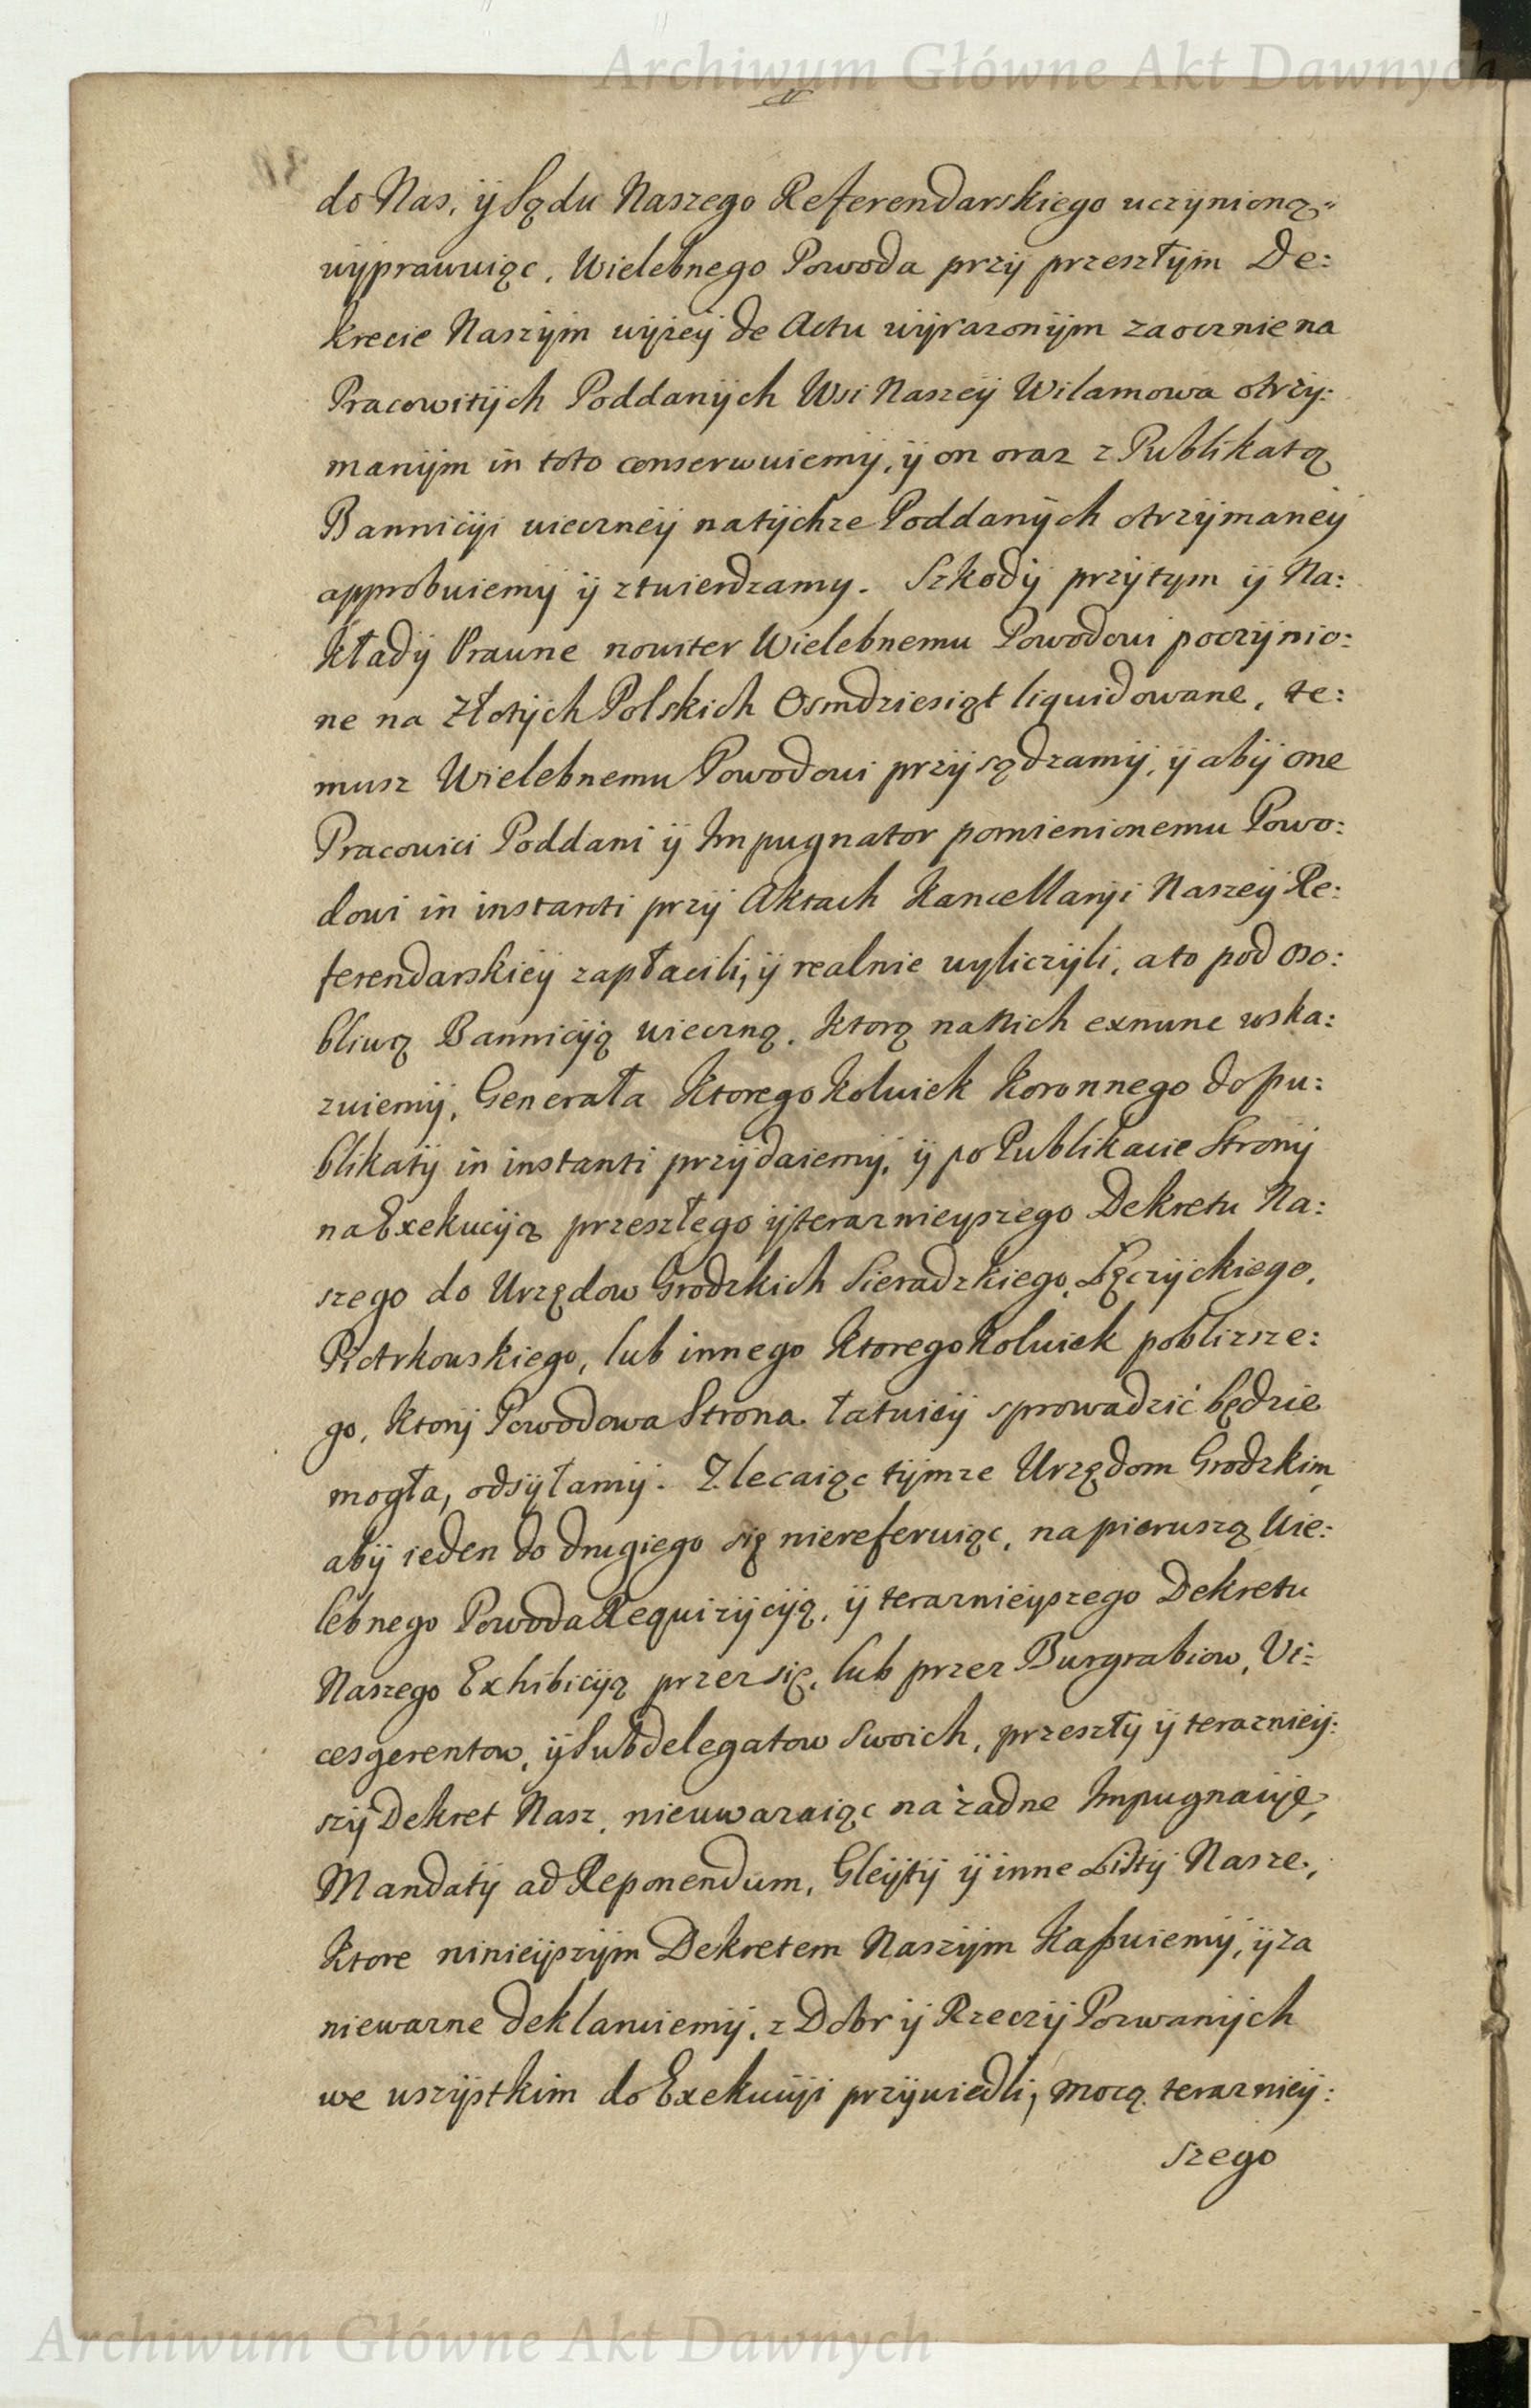 Archiwum Główne Akt Dawnych
do Nas, ÿ Sądu Naszego Referendarskiego uczÿnioną
wÿprawuiąc, Wielebnego Powoda przÿ przeszłÿm De:
krecie Naszÿm wÿzeÿ de Actu wÿrazonÿm zaocznie na
Pracowitÿch Poddanÿch Wsi Naszeÿ Wilamowa otrzÿ:
manÿm in toto conserwuiemÿ, ÿ on oraz z Publikatą
Bannicÿi wieczneÿ natÿchze Poddanÿch otrzÿmaneÿ
approbuiemÿ ÿ ztwierdzamy. Szkodÿ przÿtym ÿ Na:
kładÿ Prawne nowiter Wielebnemu Powodowi poczÿnio:
ne na Złotÿch Polskich Osmdziesiąt liquidowane, te:
musz Wielebnemu Powodowi przÿsądzamÿ, ÿ abÿ one
Pracowici Poddani ÿ Impugnator pomienionemu Powo:
dowi in instanti przÿ Aktach Kancellarÿi Naszeÿ Re:
ferendarskieÿ zapłacili, ÿ realnie wyliczÿli, a to pod oso:
bliwą Bannicÿą wieczną, ktorą na Nich exnunc wska:
zuiemÿ, Generała ktoregokolwiek Koronnego do pu:
blikatÿ in instanti przÿdaiemÿ, ÿ po Publikacie Stronÿ
na Exekucÿą przeszłego ÿ teraznieÿszego Dekretu Na:
szego do Urzędow Grodzkich Sieradzkiego, Łęczÿckiego,
Piotrkowskiego, lub innego ktoregokolwiek poblizsze:
go, ktorÿ Powodowa Strona łatwieÿ sprowadzić będzie
mogła, odsÿłamÿ. Zlecaiąc tÿmze Urzędom Grodzkim,
abÿ ieden do drugiego się niereferuiąc, na pierwszą Wie:
lebnego Powoda Requizÿcÿą, ÿ teraznieÿszego Dekretu
Naszego Exhibicÿą przez się, lub przez Burgrabiow, Vi:
cesgerentow, ÿ Subdelegatow Swoich, przeszłÿ ÿ teraznieÿ:
szÿ Dekret Nasz, nieuwazaiąc na żadne Impugnacÿę,
Mandatÿ ad Reponendum, Gleÿtÿ ÿ inne Listÿ Nasze,
ktore ninieÿszÿm Dekretem Naszÿm kaßuiemÿ, ÿ za
niewazne deklaruiemÿ, z Dobr ÿ Rzeczÿ Pozwanÿch
we wszÿstkim do Exekucÿi przÿwiedli, mocą teraznieÿ:
szego
Archiwum Główne Akt Dawnych